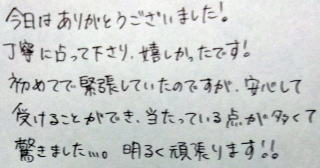 今日はありがとうございました!
丁寧に占って下さり、嬉しかったです!
初めてで緊張していたのですが、安心して
受けることができ、当たっている点が多くて
驚きました…。明るく頑張ります!!